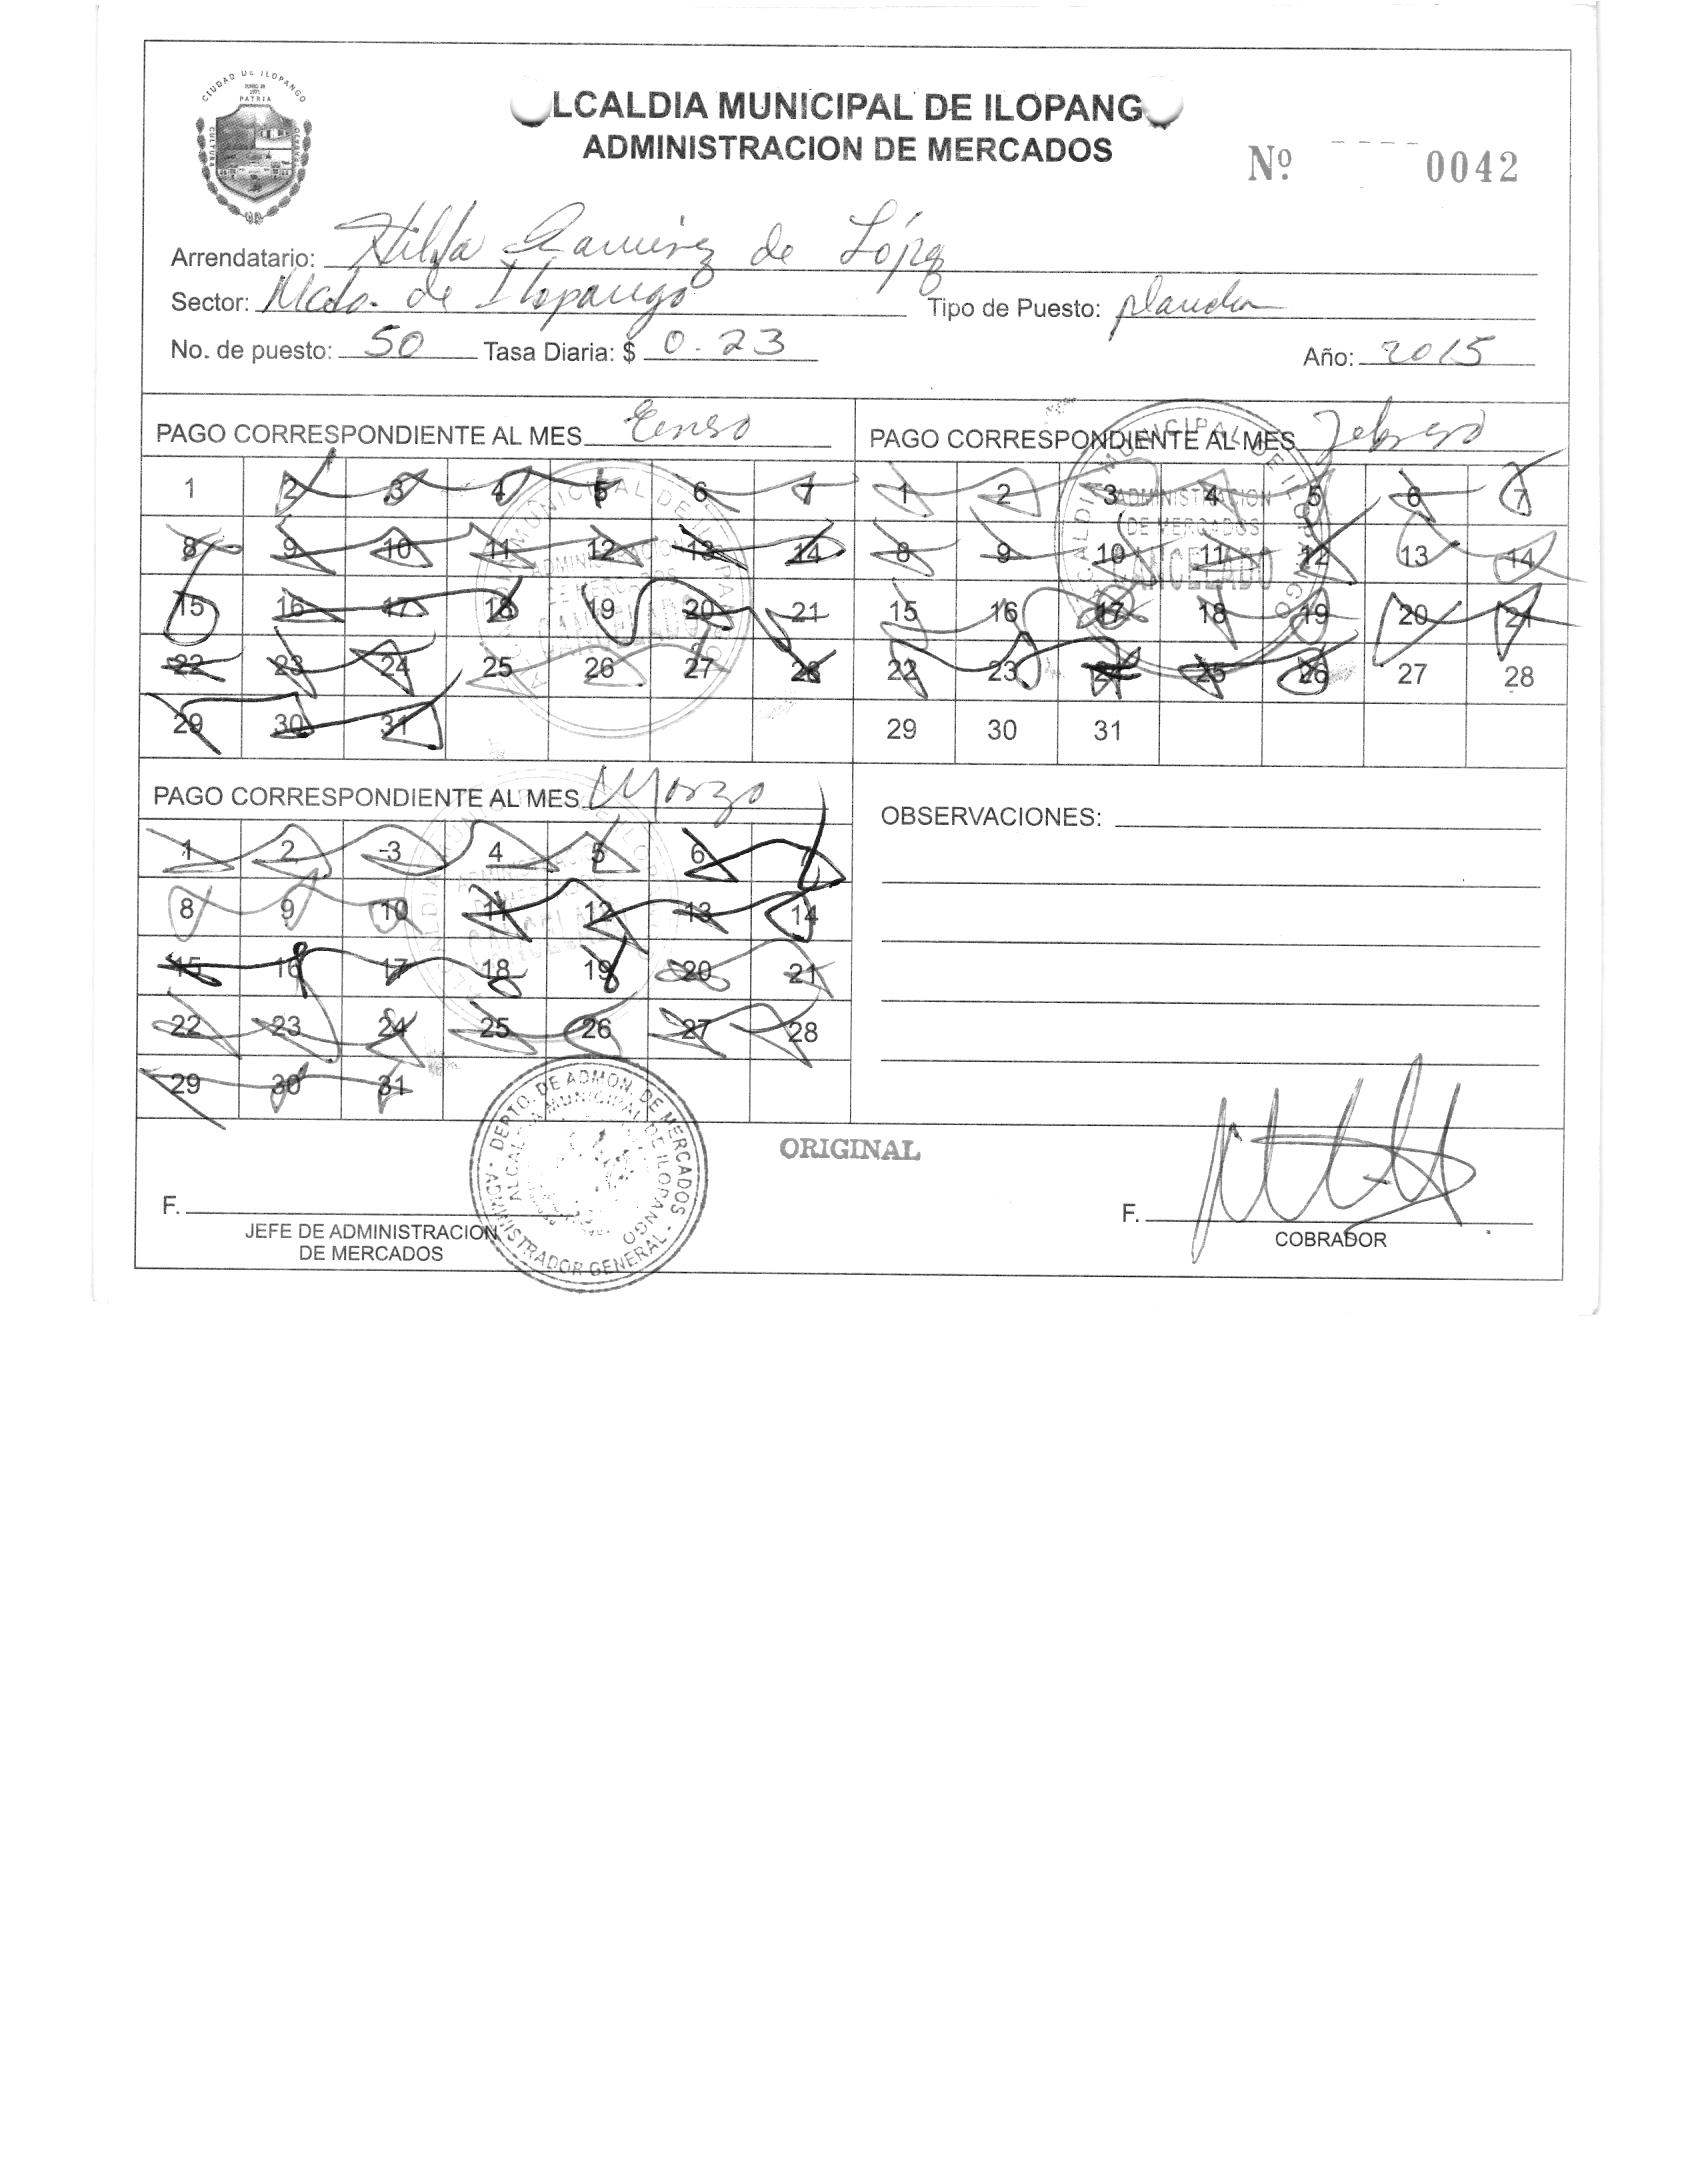 CIUDAD DE ILOPANGO
PATRIA
CULTURA
LCALDIA MUNICIPAL DE ILOPANG
ADMINISTRACION DE MERCADOS
Nº 0042
Arrendatario: Hilda Ramirez de López
Sector: Mcdo. de Ilopango Tipo de Puesto:
No. de puesto: 50 Tasa Diaria: $ 0.23 Año: 2015
PAGO CORRESPONDIENTE AL MES Enero
1 2 3 4 5 6 7
8 9 10 11 12 13 14
15 16 17 18 19 20 21
22 23 24 25 26 27 28
29 30 31
PAGO CORRESPONDIENTE AL MES Febrero
1 2 3 4 5 6 7
8 9 10 11 12 13 14
15 16 17 18 19 20 21
22 23 24 25 26 27 28
29 30 31
ALCALDIA MUNICIPAL DE ILOPANGO
ADMINISTRACION
DE MERCADOS
CANCELADO
PAGO CORRESPONDIENTE AL MES Marzo
1 2 3 4 5 6 7
8 9 10 11 12 13 14
15 16 17 18 19 20 21
22 23 24 25 26 27 28
29 30 31
OBSERVACIONES:
ORIGINAL
F.
JEFE DE ADMINISTRACION
DE MERCADOS
DEPTO. DE ADMON. DE MERCADOS - ADMINISTRADOR GENERAL
ALCALDIA MUNICIPAL DE ILOPANGO
F.
COBRADOR